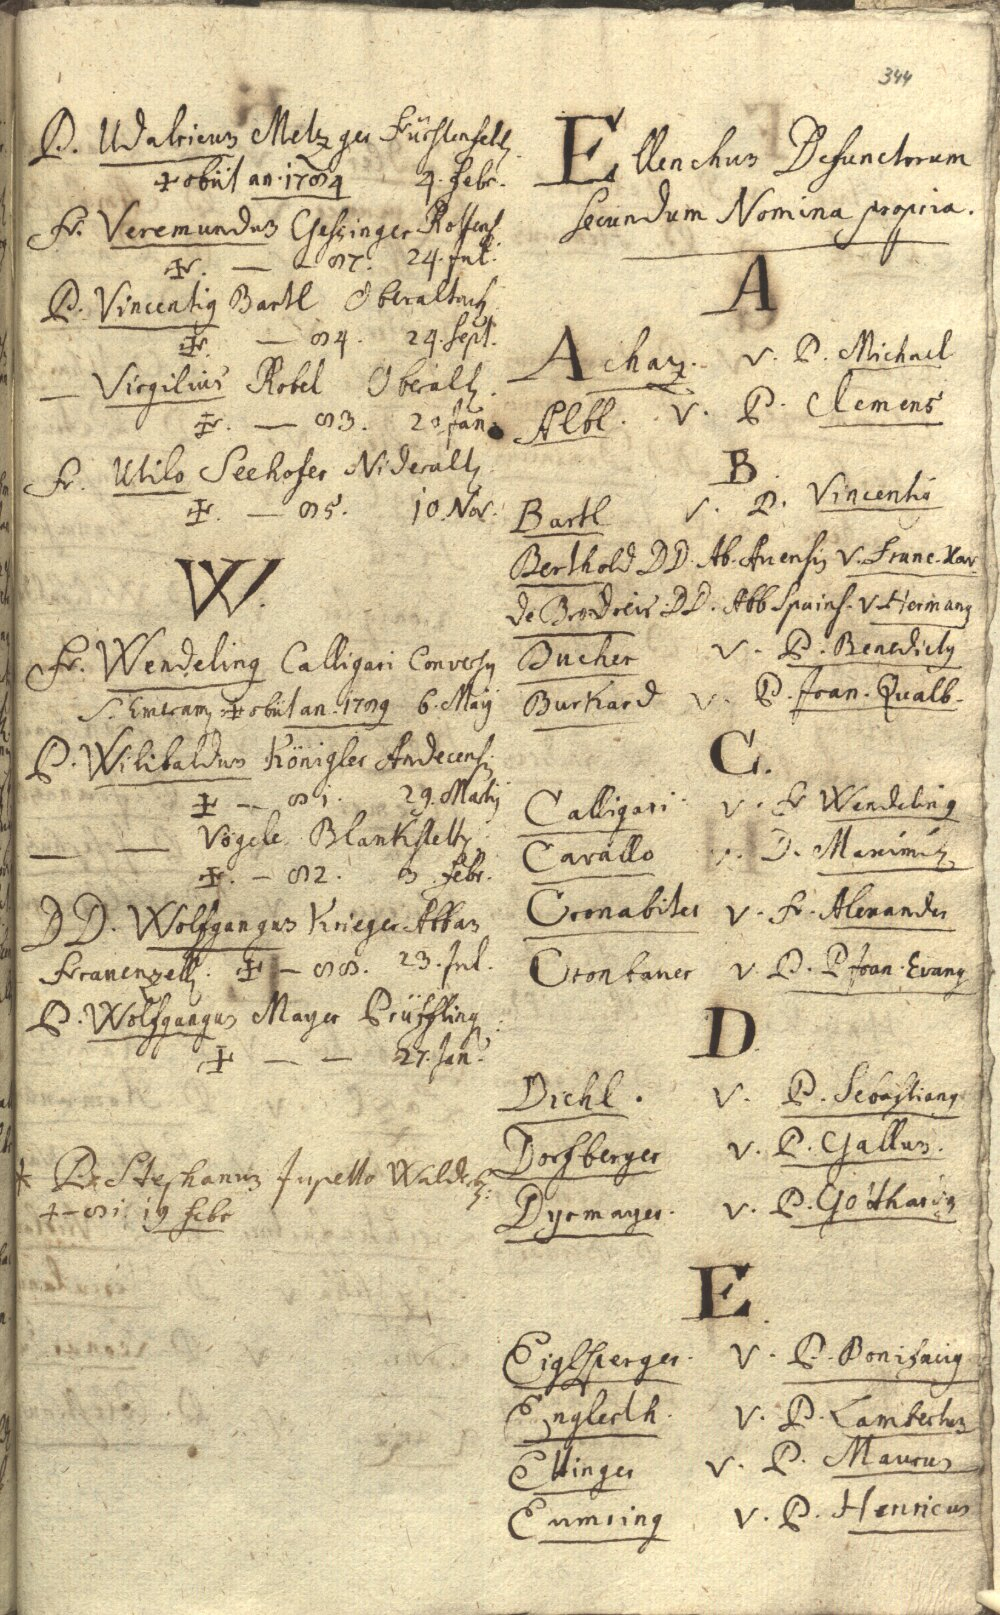 344
P. Udalricus Metzger Fürstenfeld.
✠ obiit an. 1784 4. Febr.
Fr. Veremundus Gessinger
✠. — — 87. 24. Jul.
P. Vincentiq Bartl Oberaltach
✠. — 84. 24. Sept.
— Virgilius Röbel Oberalt.
✠. — 83. 20 Jan.
Fr. Utilo Seehofer Nideralt.
✠. — 85. 10. Nov.
W.
Fr. Wendelinq Calligari Conversq
S. Emeram. ✠ obiit an. 1789 6. Maij
P. Wilibaldus Königler Andecens.
✠ — 81. 29. Martij
— — Vögele Blankstett.
✠. — 82. 3 Febr.
DD. Wolfgangus Krieger Abbas
Frauenzell. ✠ — 88. 23. Jul.
P. Wolfgangus Mayer Prüffling.
✠ — — 27. Jan.
* P. Stephanus Jupetto
✠ — 81 19 Febr
Ellenchus Defunctorum
secundum Nomina propria.
A
Achaz. v. P. Michael
Albl. v. P. Clemens
B
Bartl v. P. Vincentiq
Berthold DD. Ab. v. Franc. Xav.
DD. Abb v. Hermanq
Bucher v. P. Benedictq
Burkard v. P. Joan. Qualb.
C.
Calligari v. Fr Wendelinq
Cavallo v. D. Maximil.
Cronabiter v. Fr. Alexander
Crontaner v. P. P Joan. Evang
D.
Diehl. v. P. Sebastianq
Dorfberger v. P. Gallus.
Dyrmayer. v. P. Gotthardq
E.
Eiglsperger. v. P. Bonifaciq
Englerth. v. P. Lambertus
Ettinger v. P. Maurus
Eumring v. P. Henricus